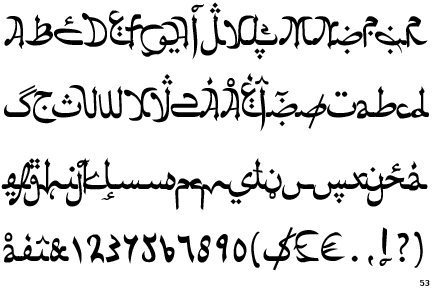 ABCDEFGHIJKLMNOPQR
STUVWXYZÀÅÉÎÕØabcd
efghijklmnopqrstuvwxyzà
åéî&1234567890($£€.,!?)
53